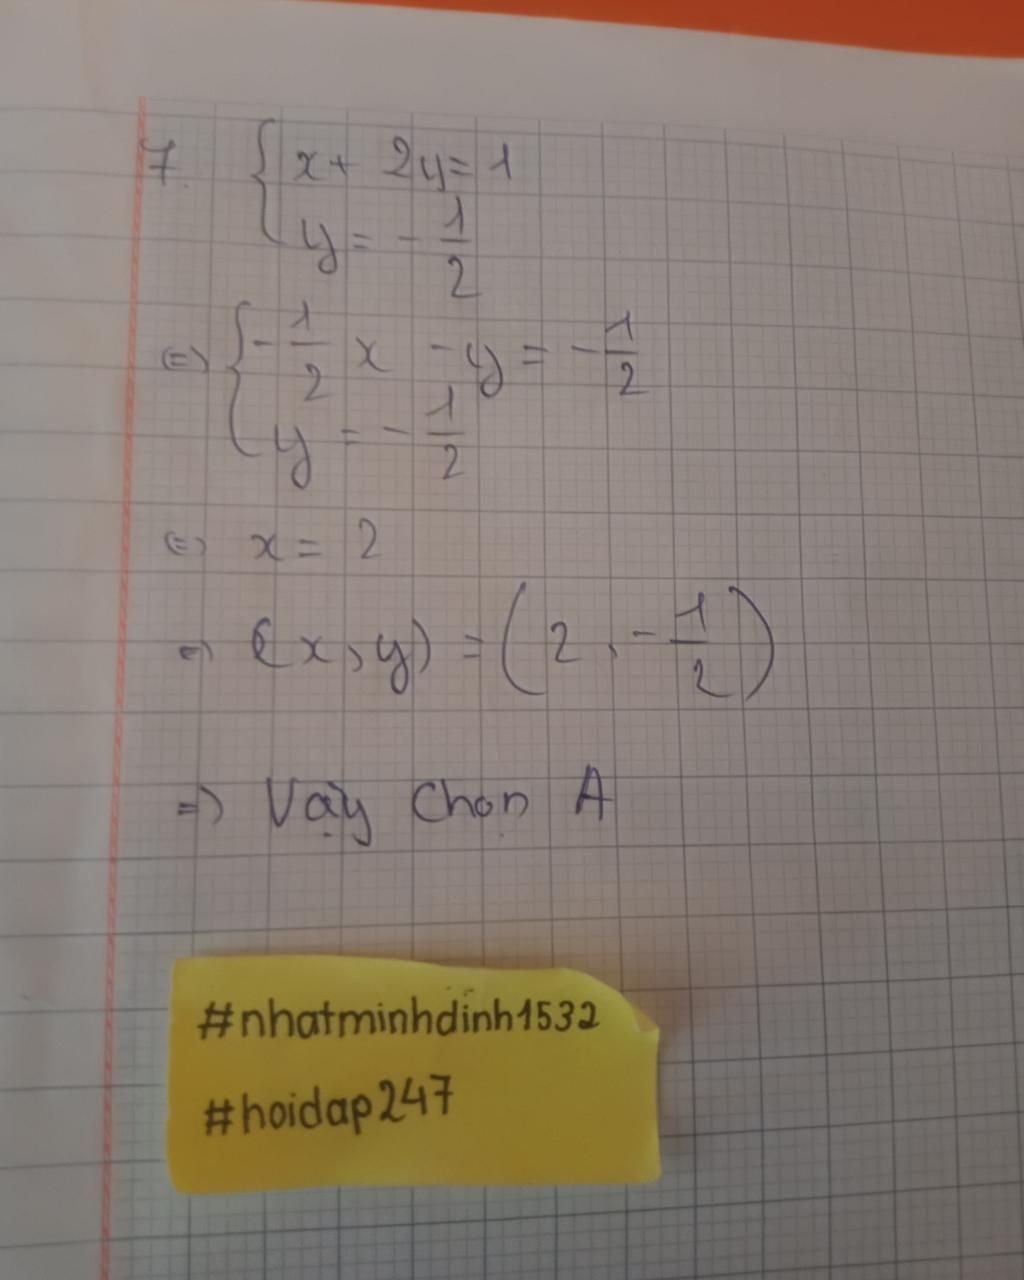 7. { x + 2y = 1
y = - 1/2
⇔ { - 1/2 x - y = - 1/2
y = - 1/2
⇔ x = 2
⇒ (x, y) = (2, - 1/2)
⇒ Vậy Chọn A
#nhatminhdinh1532
#hoidap247